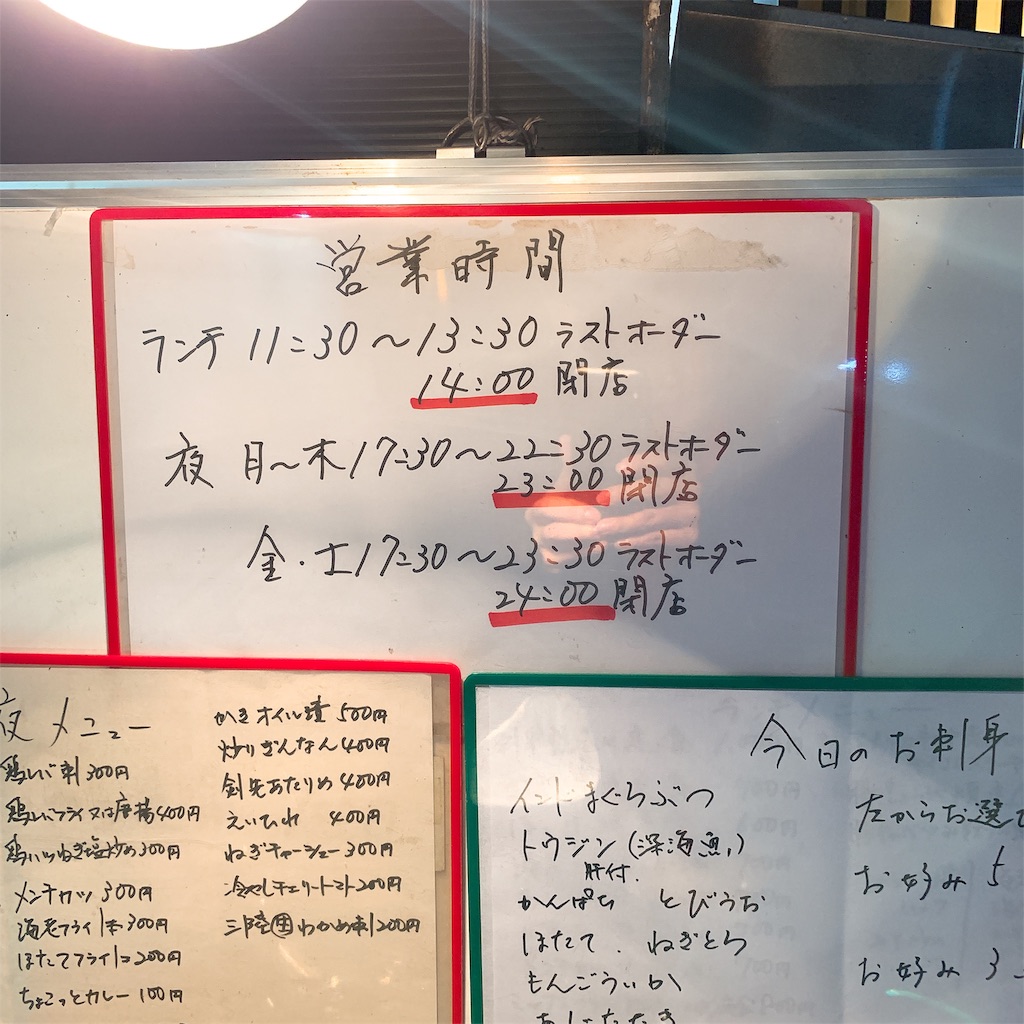 営業時間
ランチ 11:30～13:30 ラストオーダー
14:00 閉店
夜 月～木 17:30～22:30 ラストオーダー
23:00 閉店
金・土 17:30～23:30 ラストオーダー
24:00 閉店
夜メニュー
鶏レバ刺 300円
鶏レバフライ又は唐揚 400円
ねぎ塩炒め 300円
メンチカツ 300円
海老フライ1本 300円
ほたてフライ1コ 200円
ちょこっとカレー 100円
かきオイル漬 500円
炒りぎんなん 400円
剣先あたりめ 400円
えいひれ 400円
ねぎチャーシュー 300円
冷やしチェリートマト 200円
三陸産わかめ刺 200円
今日のお刺身
インドまぐろぶつ
トウジン(深海魚)
肝付.
かんぱち とびうお
ほたて. ねぎとろ
もんごういか
あじたたき
左からお選
お好み 5
お好み 3